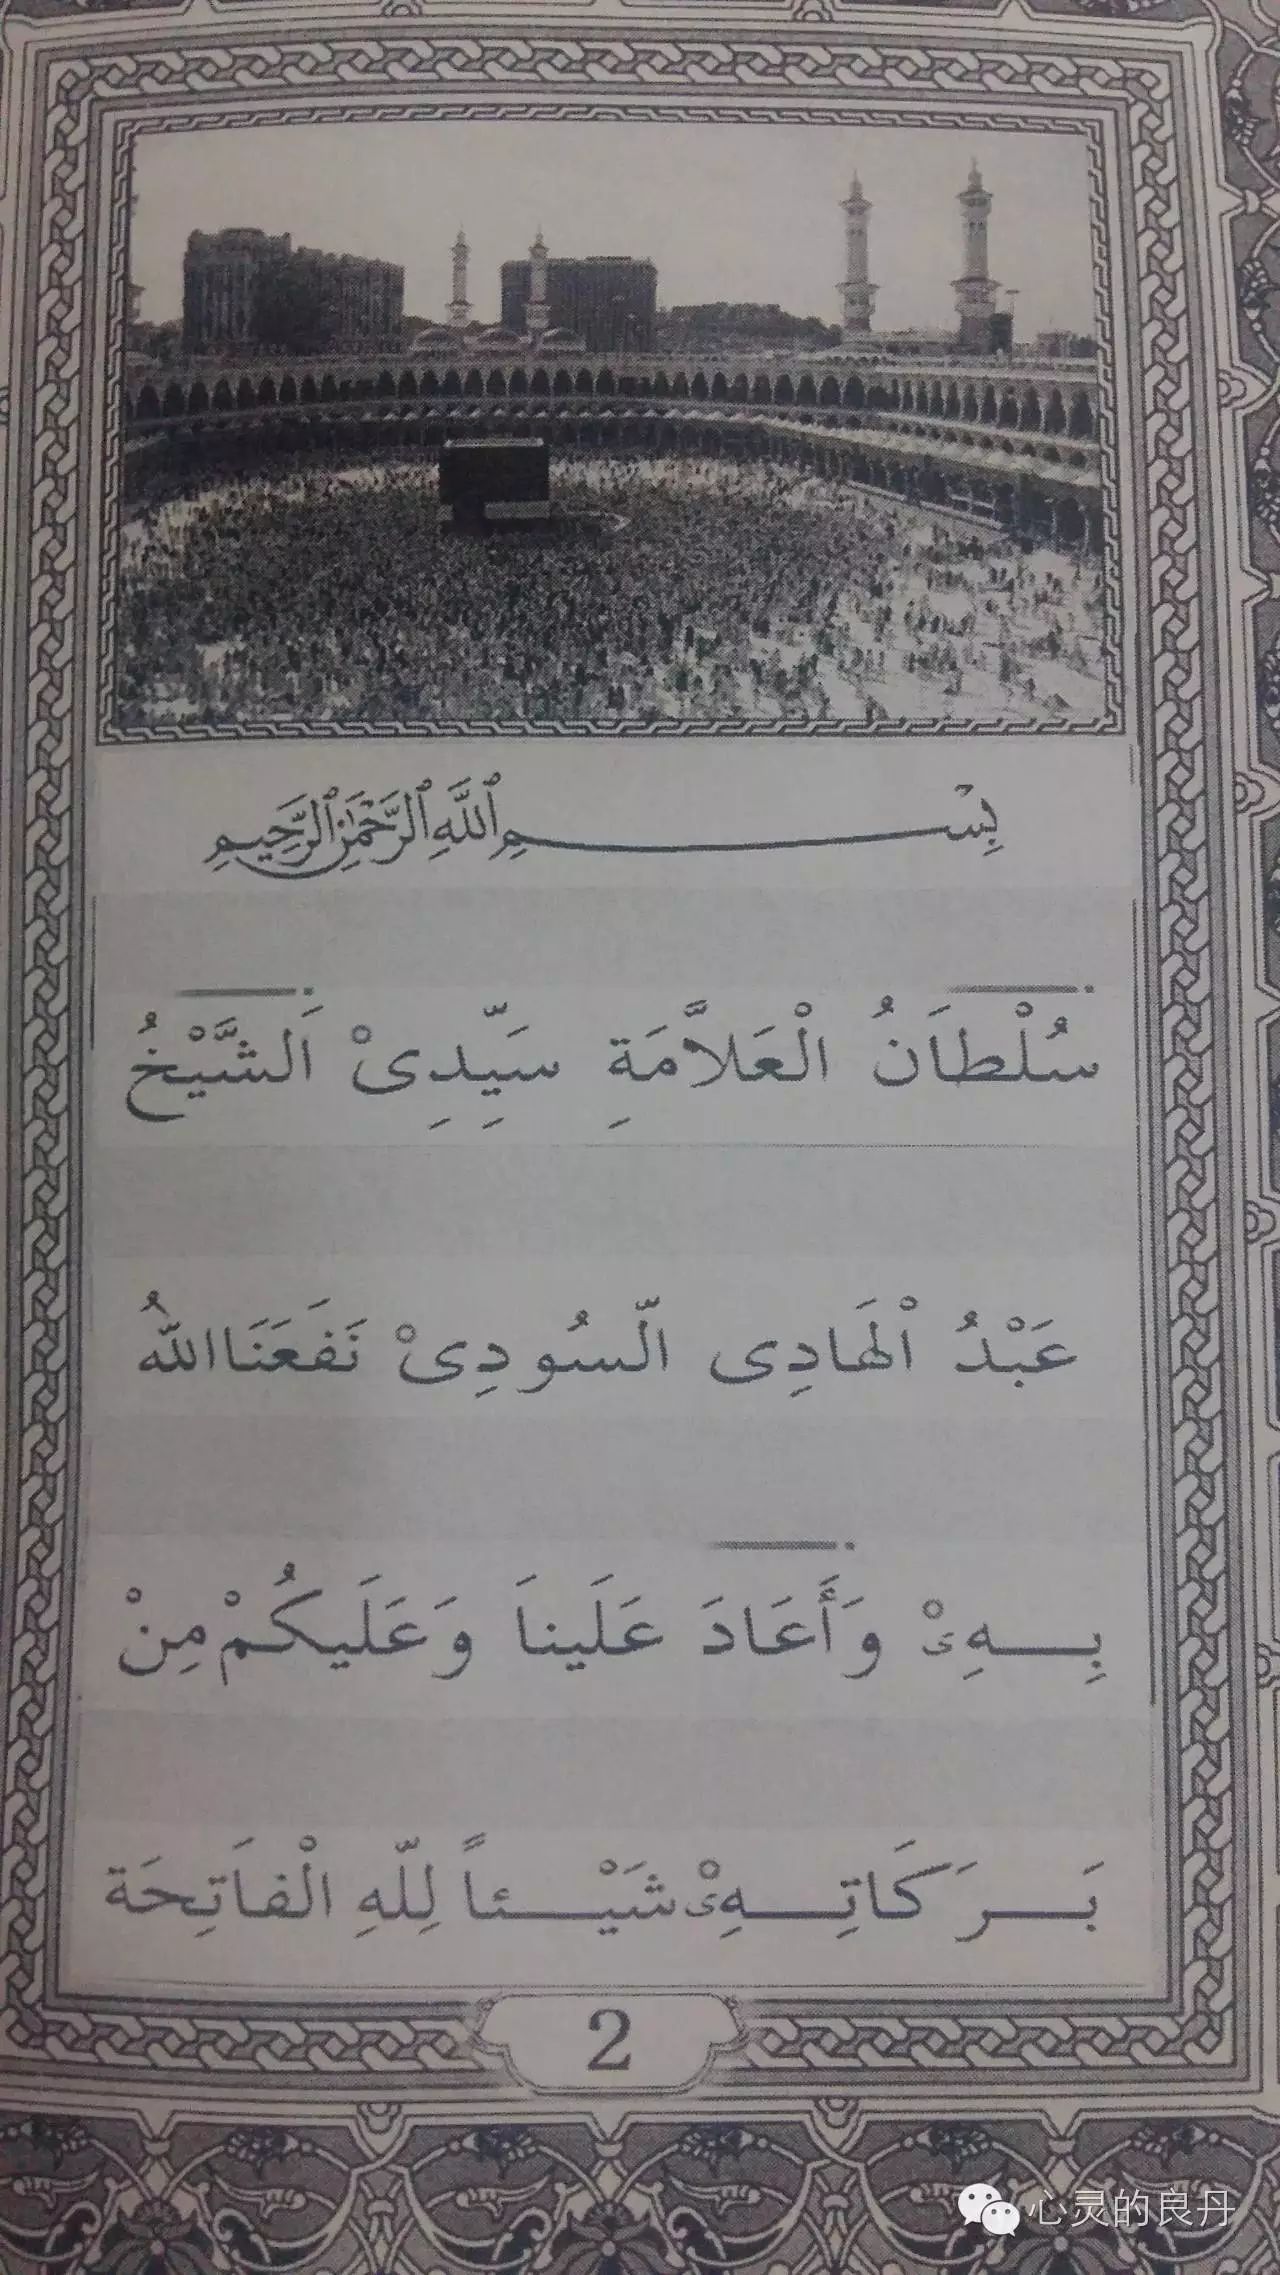 بِسْــــــمِ ٱللَّهِ ٱلرَّحْمَٰنِ ٱلرَّحِيمِ
سُلْطَانُ الْعَلاَّمَةِ سَيِّدِىْ اَلشَّيْخُ
عَبْدُ الْهَادِى السُّودِىْ نَفَعَنَا اللهُ
بِـــهِىْ وَأَعَادَ عَلَينَا وَعَلَيكُمْ مِنْ
بَـــرَكَاتِـــهِىْ شَيْـــئاً لِلّهِ الْفَاتِحَة
2
心灵的良丹